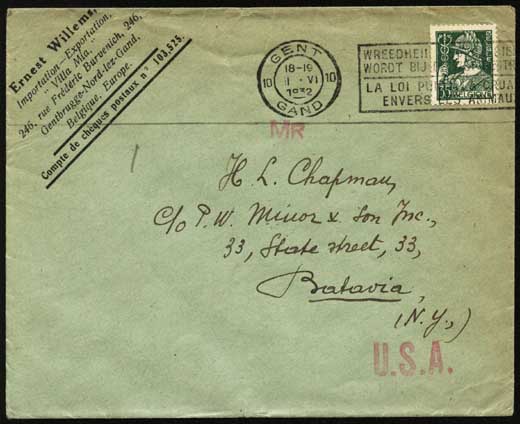 Ernest Willems,
Importation–Exportation,
"Villa Mia,"
246, rue Frédéric Burvenich, 246,
Gentbrugge-Nord-lez-Gand,
Belgique. Europe.
Compte de chèques postaux n° 103,525.
GENT
18-19
10 1 · VI 10
1932
GAND
WREEDHEID
WORDT BIJ
LA LOI
ENVERS LES ANIMAUX
MR
H. L. Chapman,
c/o P.W. Minor & Son Inc.,
33, State street, 33,
Batavia,
(N.Y.,)
U.S.A.